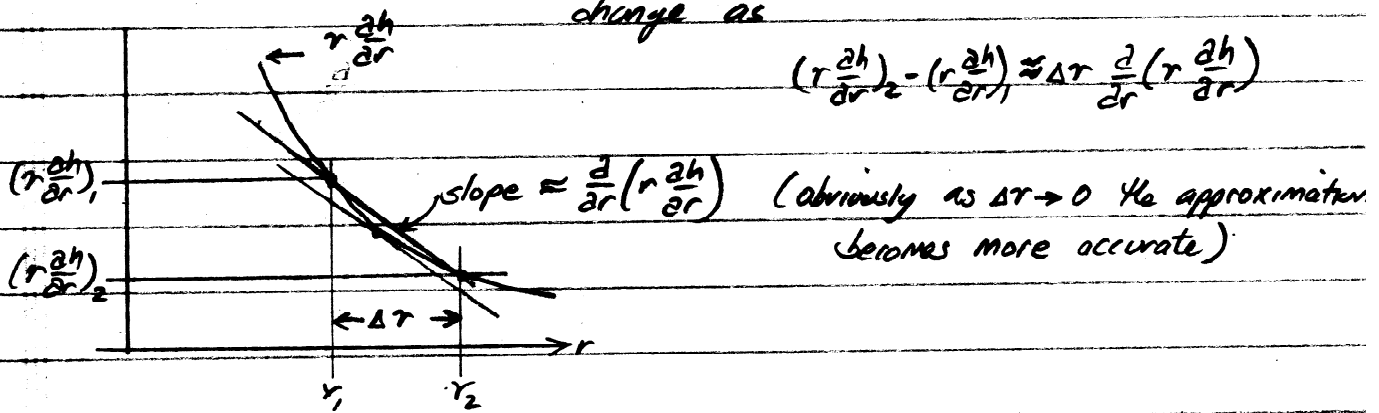 change as
← r ∂h/∂r
(r ∂h/∂r)₂ - (r ∂h/∂r)₁ ≈ Δr ∂/∂r (r ∂h/∂r)
(r ∂h/∂r)₁
slope ≈ ∂/∂r (r ∂h/∂r) (obviously as Δr → 0 the approximation
becomes more accurate)
(r ∂h/∂r)₂
← Δr →
r
r₁ r₂